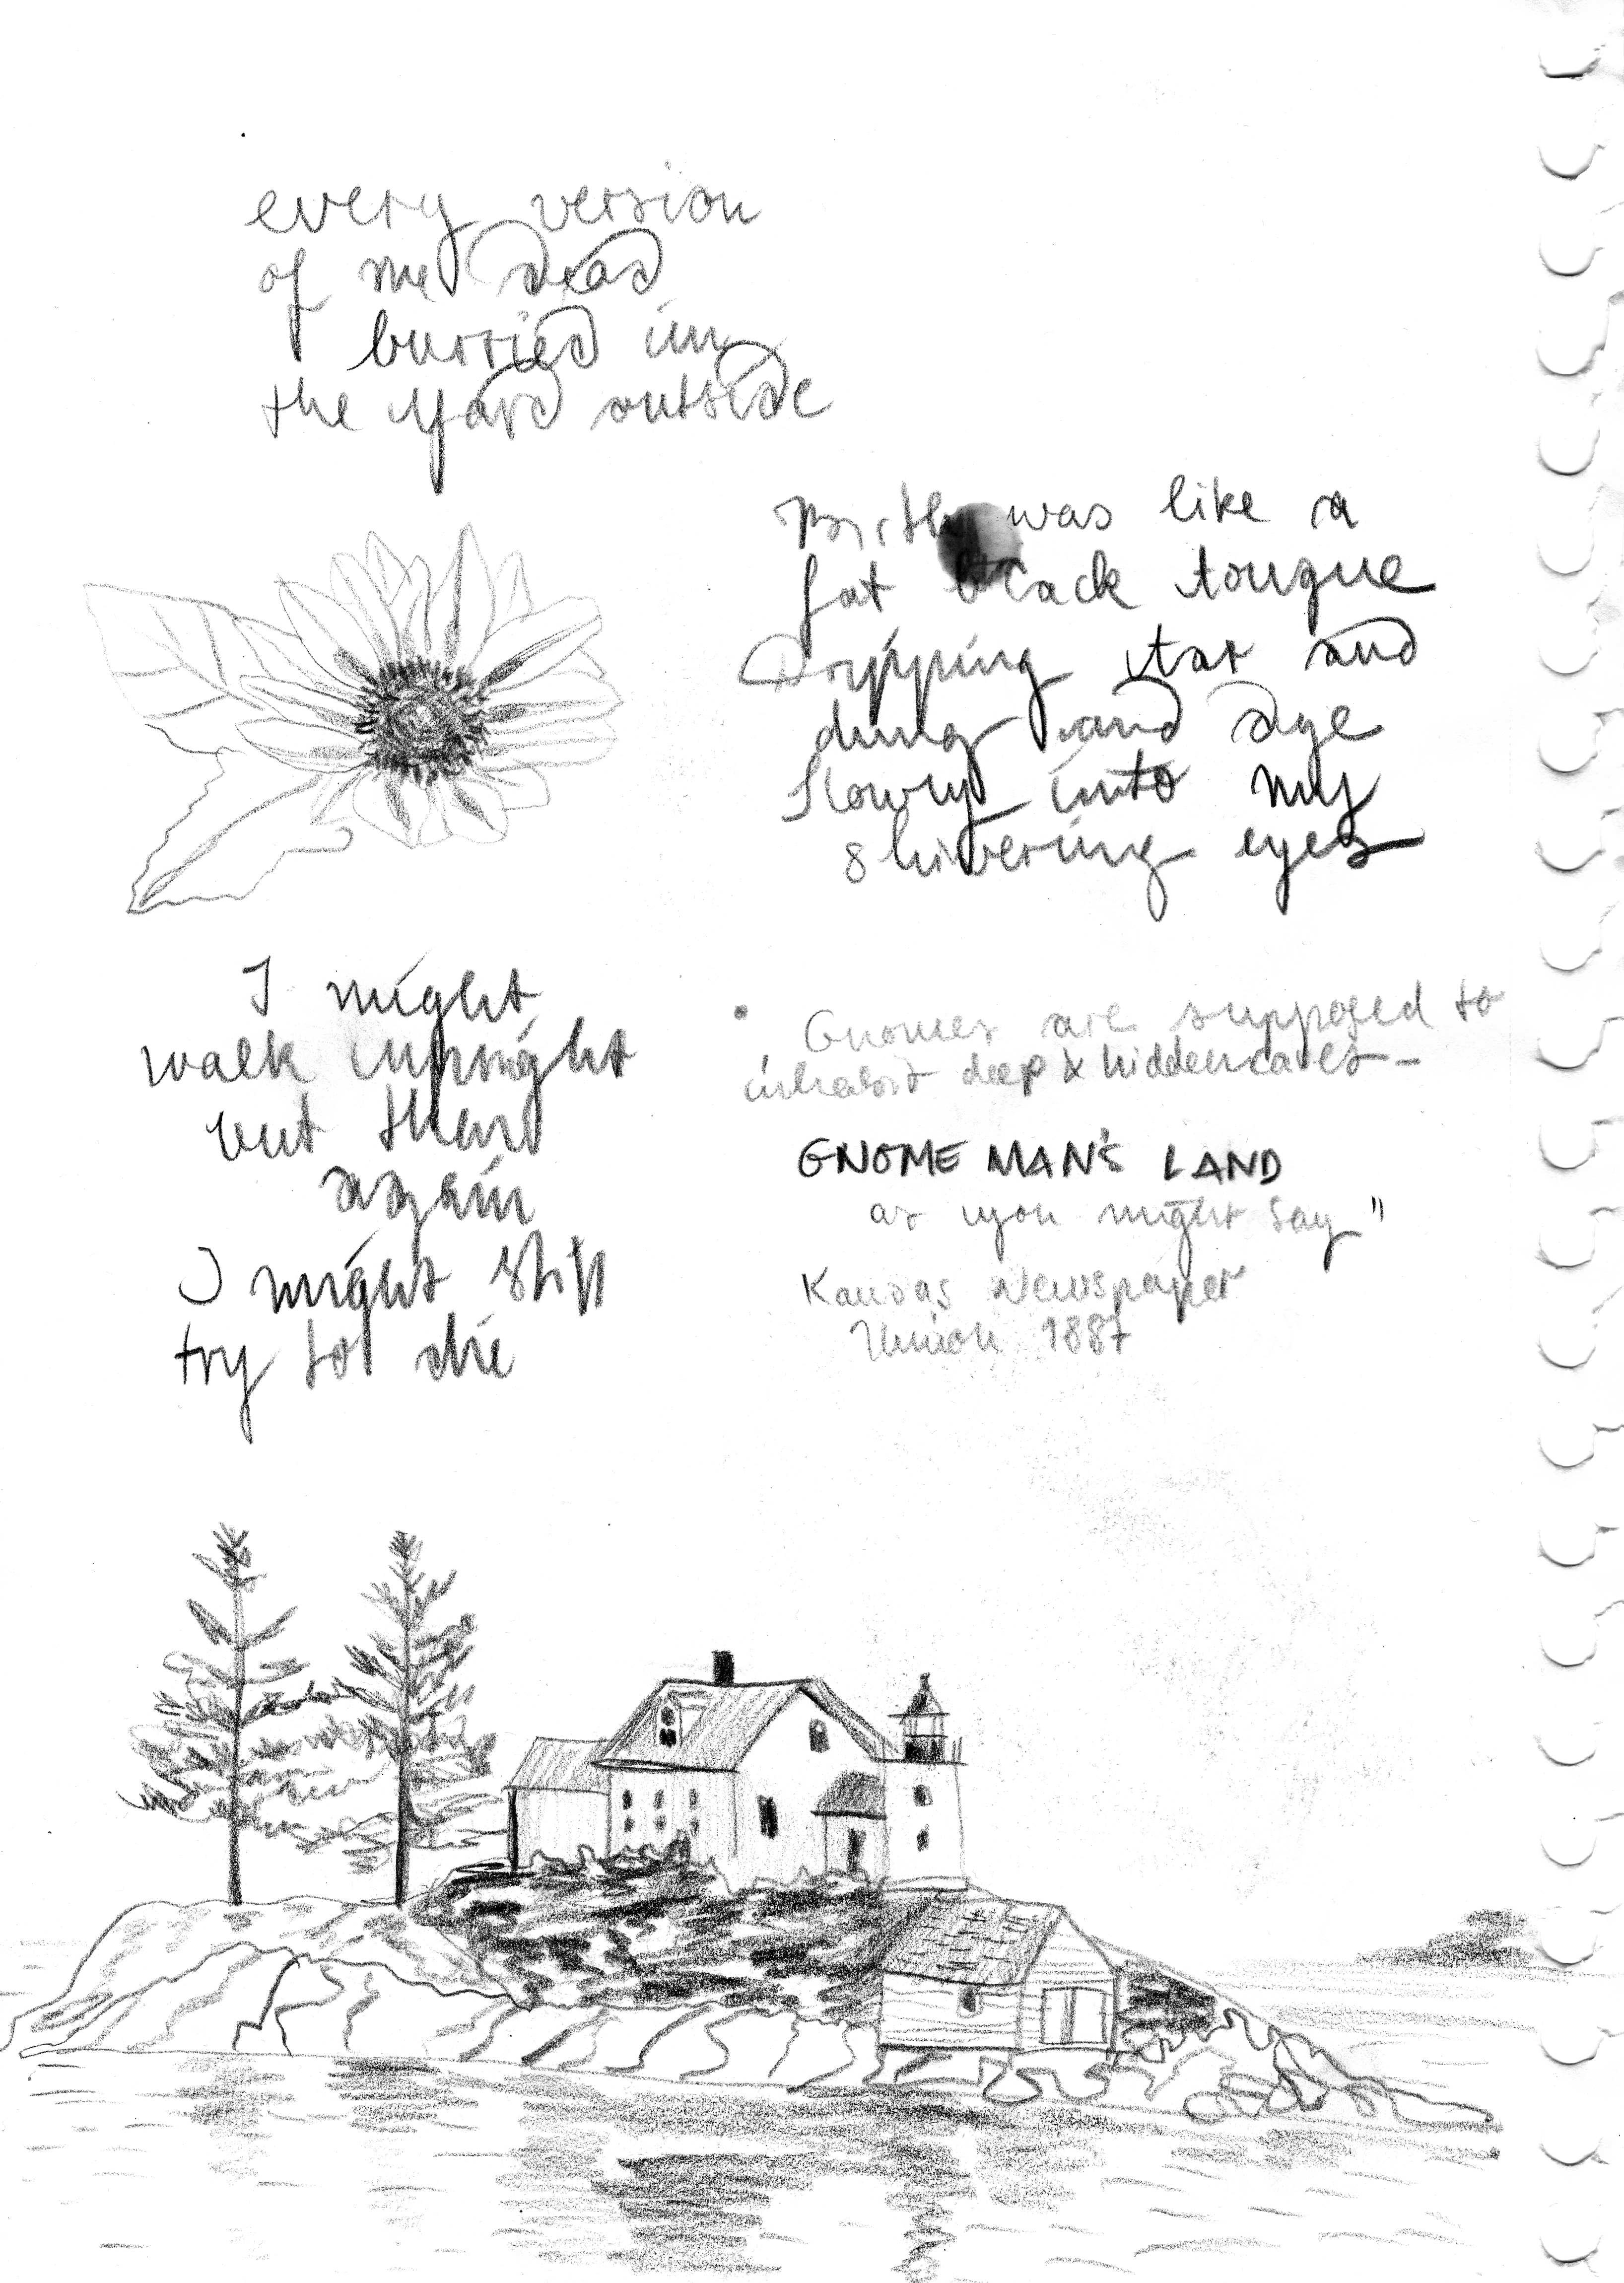 every version
of me dead
burried in
the yard outside
Birth was like a
fat black tongue
Dripping tar and
dung and age
slowly into my
shivering eyes
I might
walk upright
but then
again
I might still
try to die
• Gnomes are supposed to
inhabit deep & hidden caves -
GNOME MAN'S LAND
as you might say"
Kansas Newspaper
Union 1887